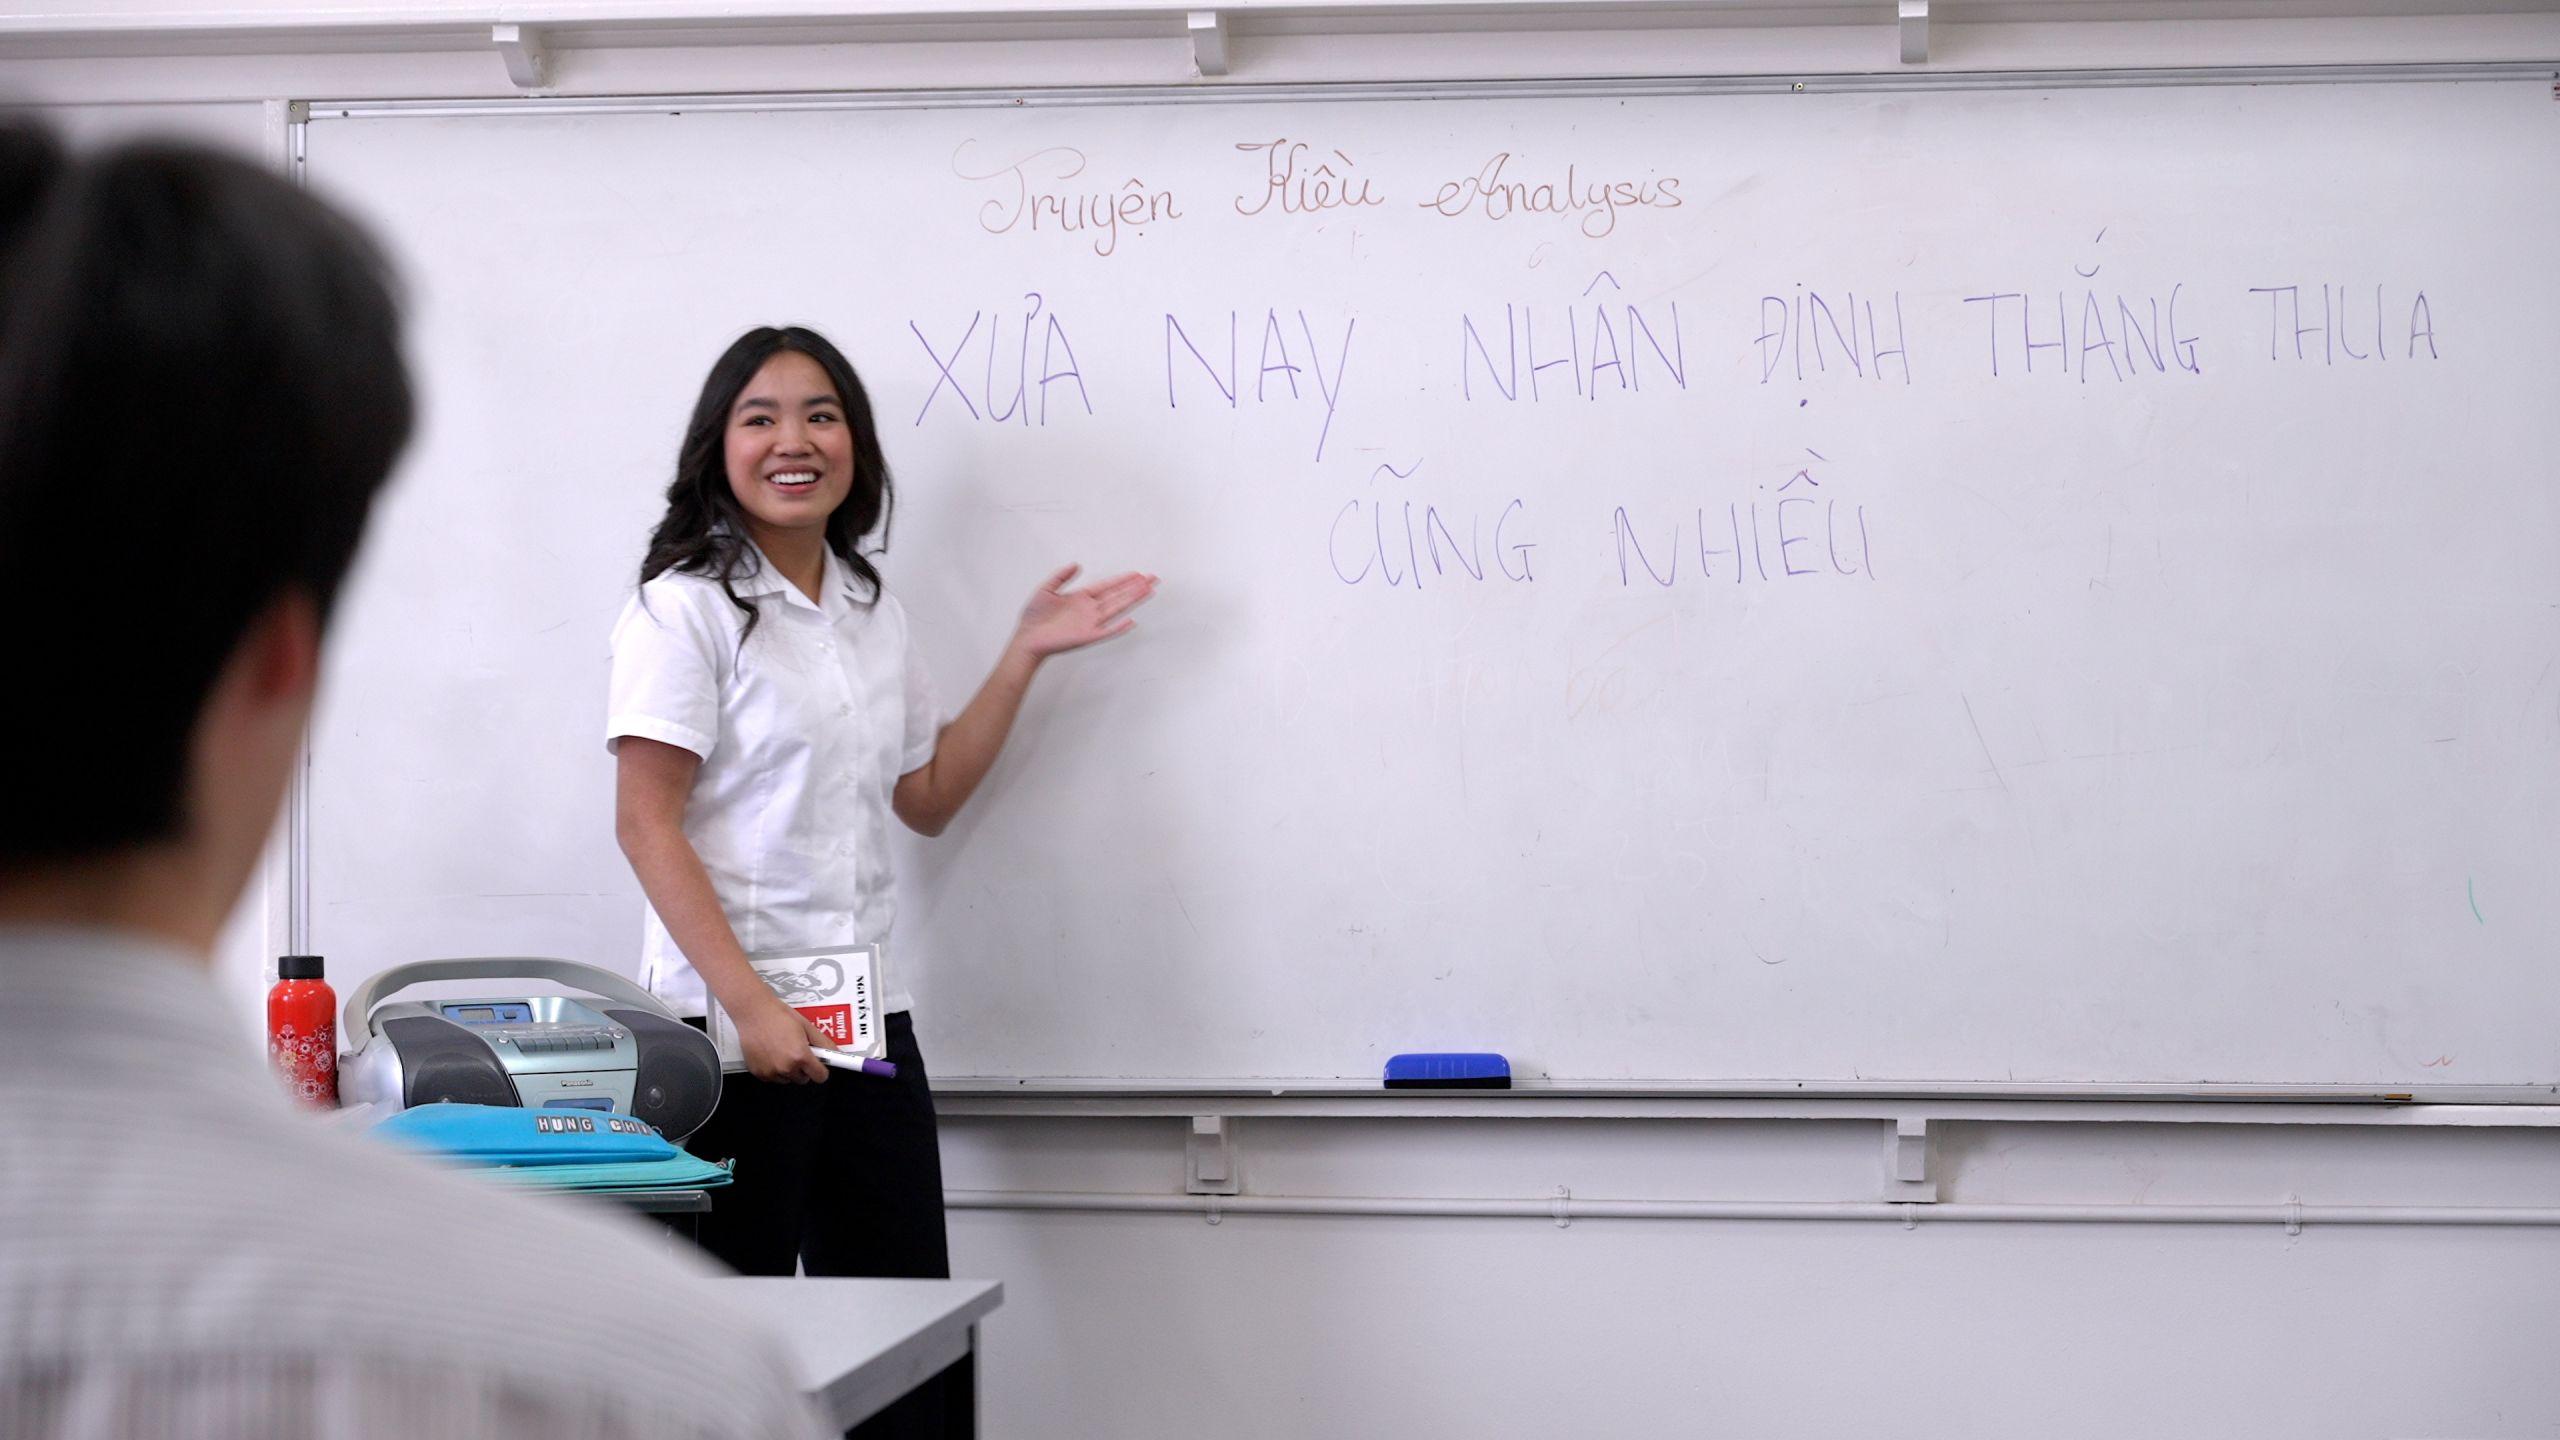 Truyện Kiều Analysis
XƯA NAY NHÂN ĐỊNH THẮNG THUA
CŨNG NHIỀU
NGUYỄN DU
TRUYỆN
Panasonic
HUNG CHI